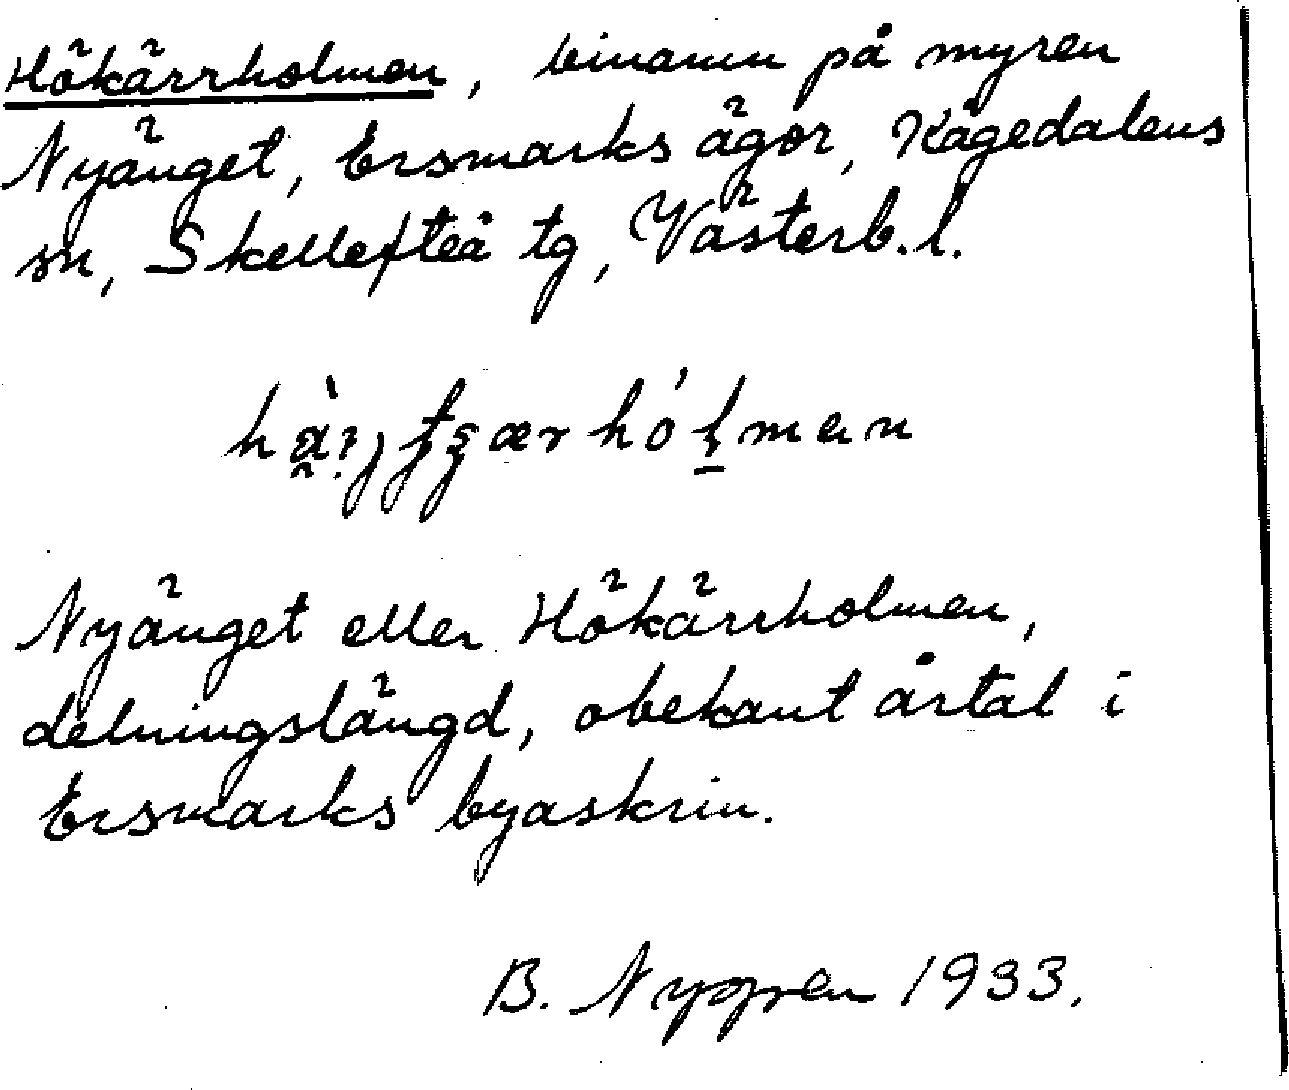 Hökärrholmen, binamn på myren
Nyänget, Ersmarks ägor, Kågedalens
sn, Skellefteå tg, Västerb.l.
Nyänget eller Hökärrholmen,
delningslängd, obekant årtal i
Ersmarks byaskrin.
B. Nygren 1933.